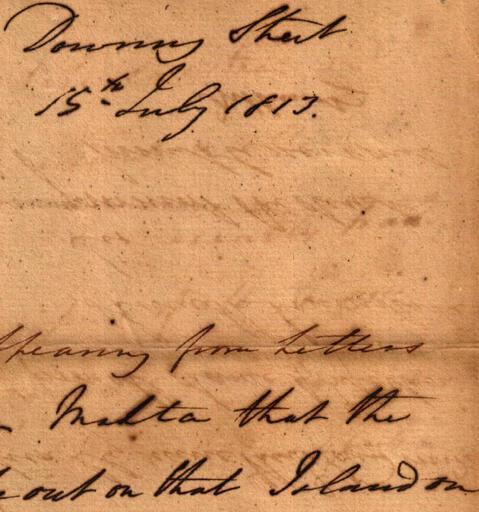 Downing Street
15th July 1813.
from Letters
Malta that the
out on that Island on